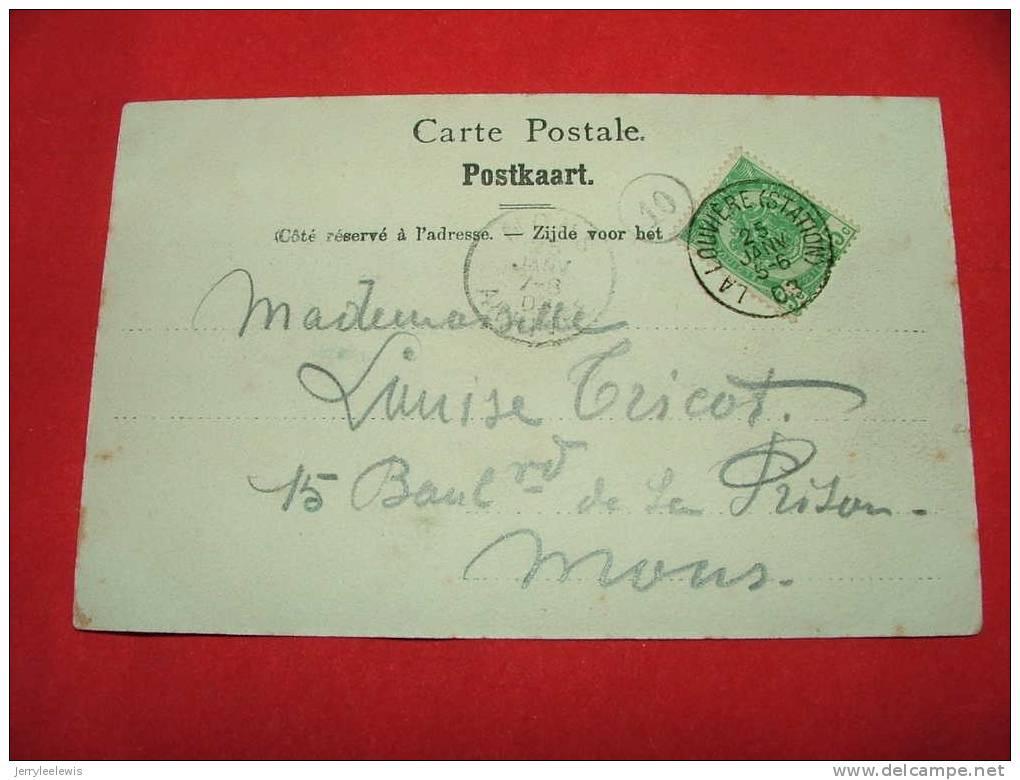 Carte Postale.
Postkaart.
(Côté réservé à l'adresse. — Zijde voor het
10
LA LOUVIÈRE (STATION)
25
JANV
5-6
03
JANV
7-8
Mademoiselle
Louise Tricot.
15 Boulrd de la Prison.
Mons.
jerryleelewis
www.delcampe.net